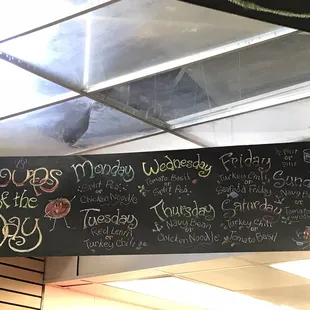 oups
of the
Day
Monday
Split Pea
or
Chicken Noodle
Tuesday
Red Lentil
or
Turkey Chili
Wednesday
Tomato Basil
or
Split Pea
Thursday
Navy Bean
or
Chicken Noodle
Friday
Turkey Chili
or
Seafood Friday
Saturday
Turkey Chili
or
Tomato Basil
or
Sun
or
Tomato